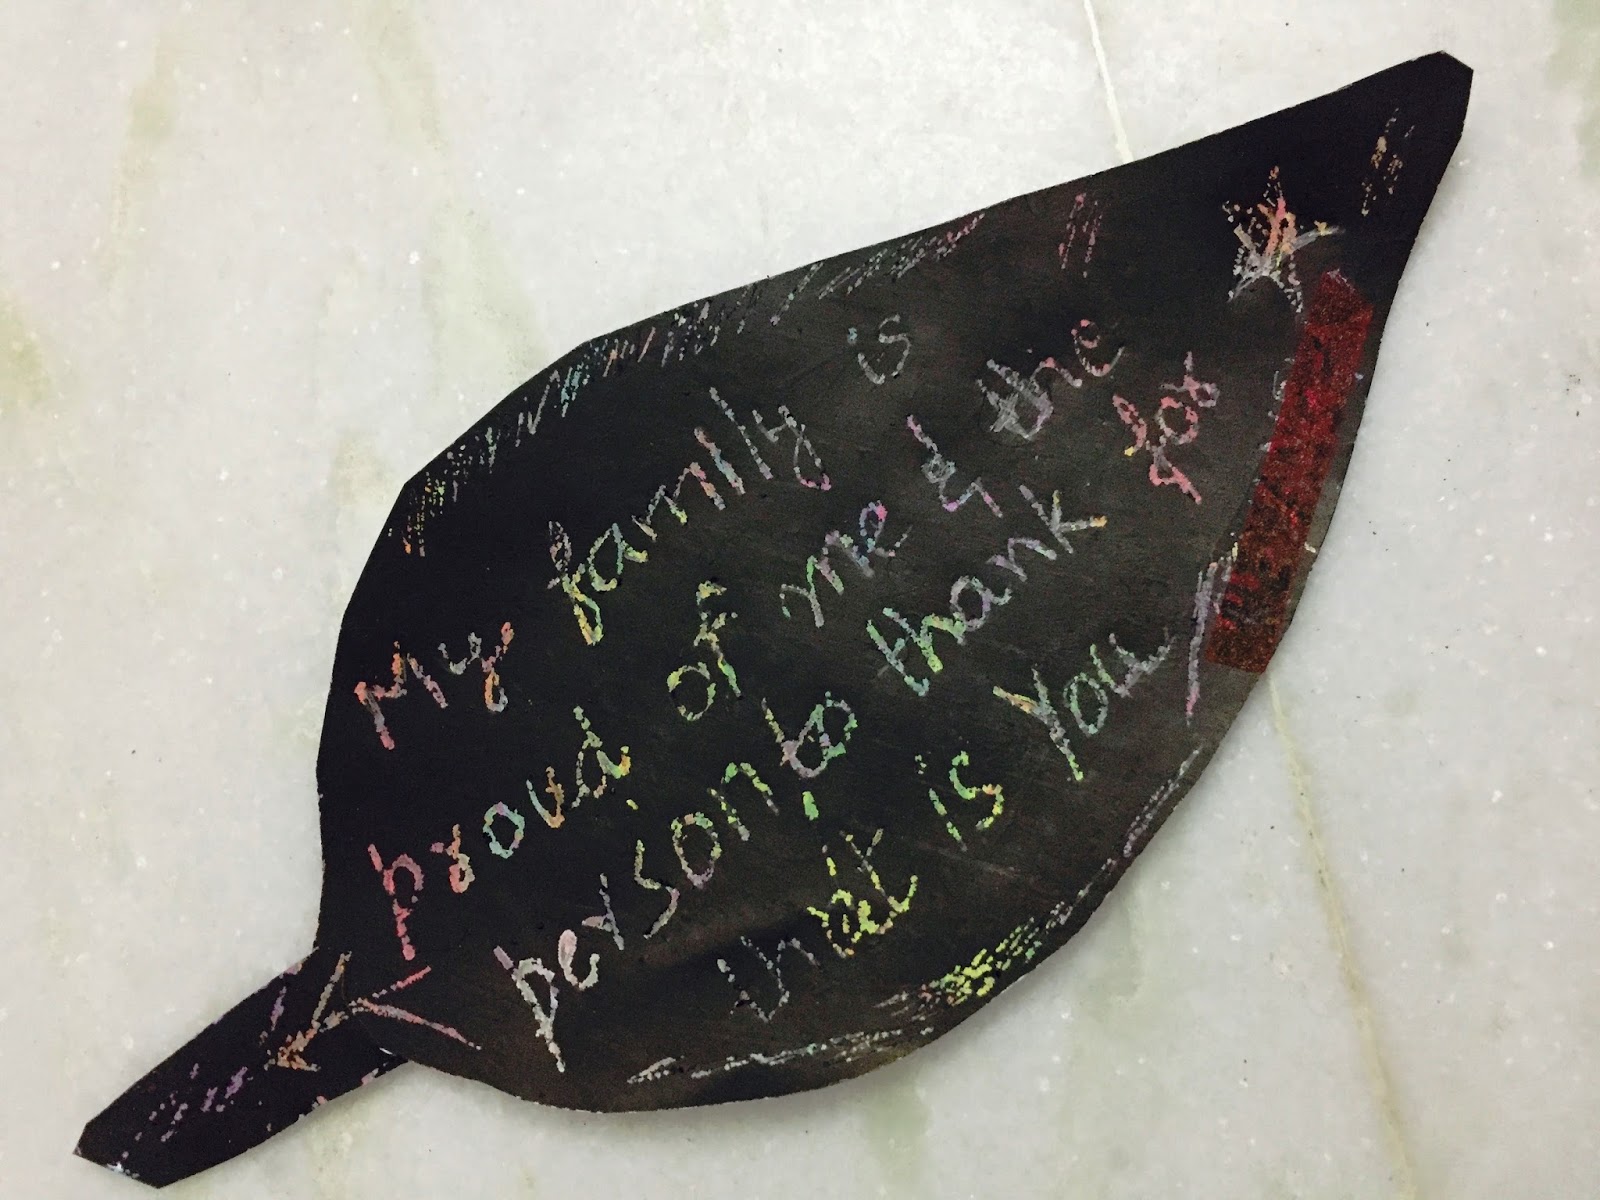 My family is
proud of me & the
person to thank for
that is You